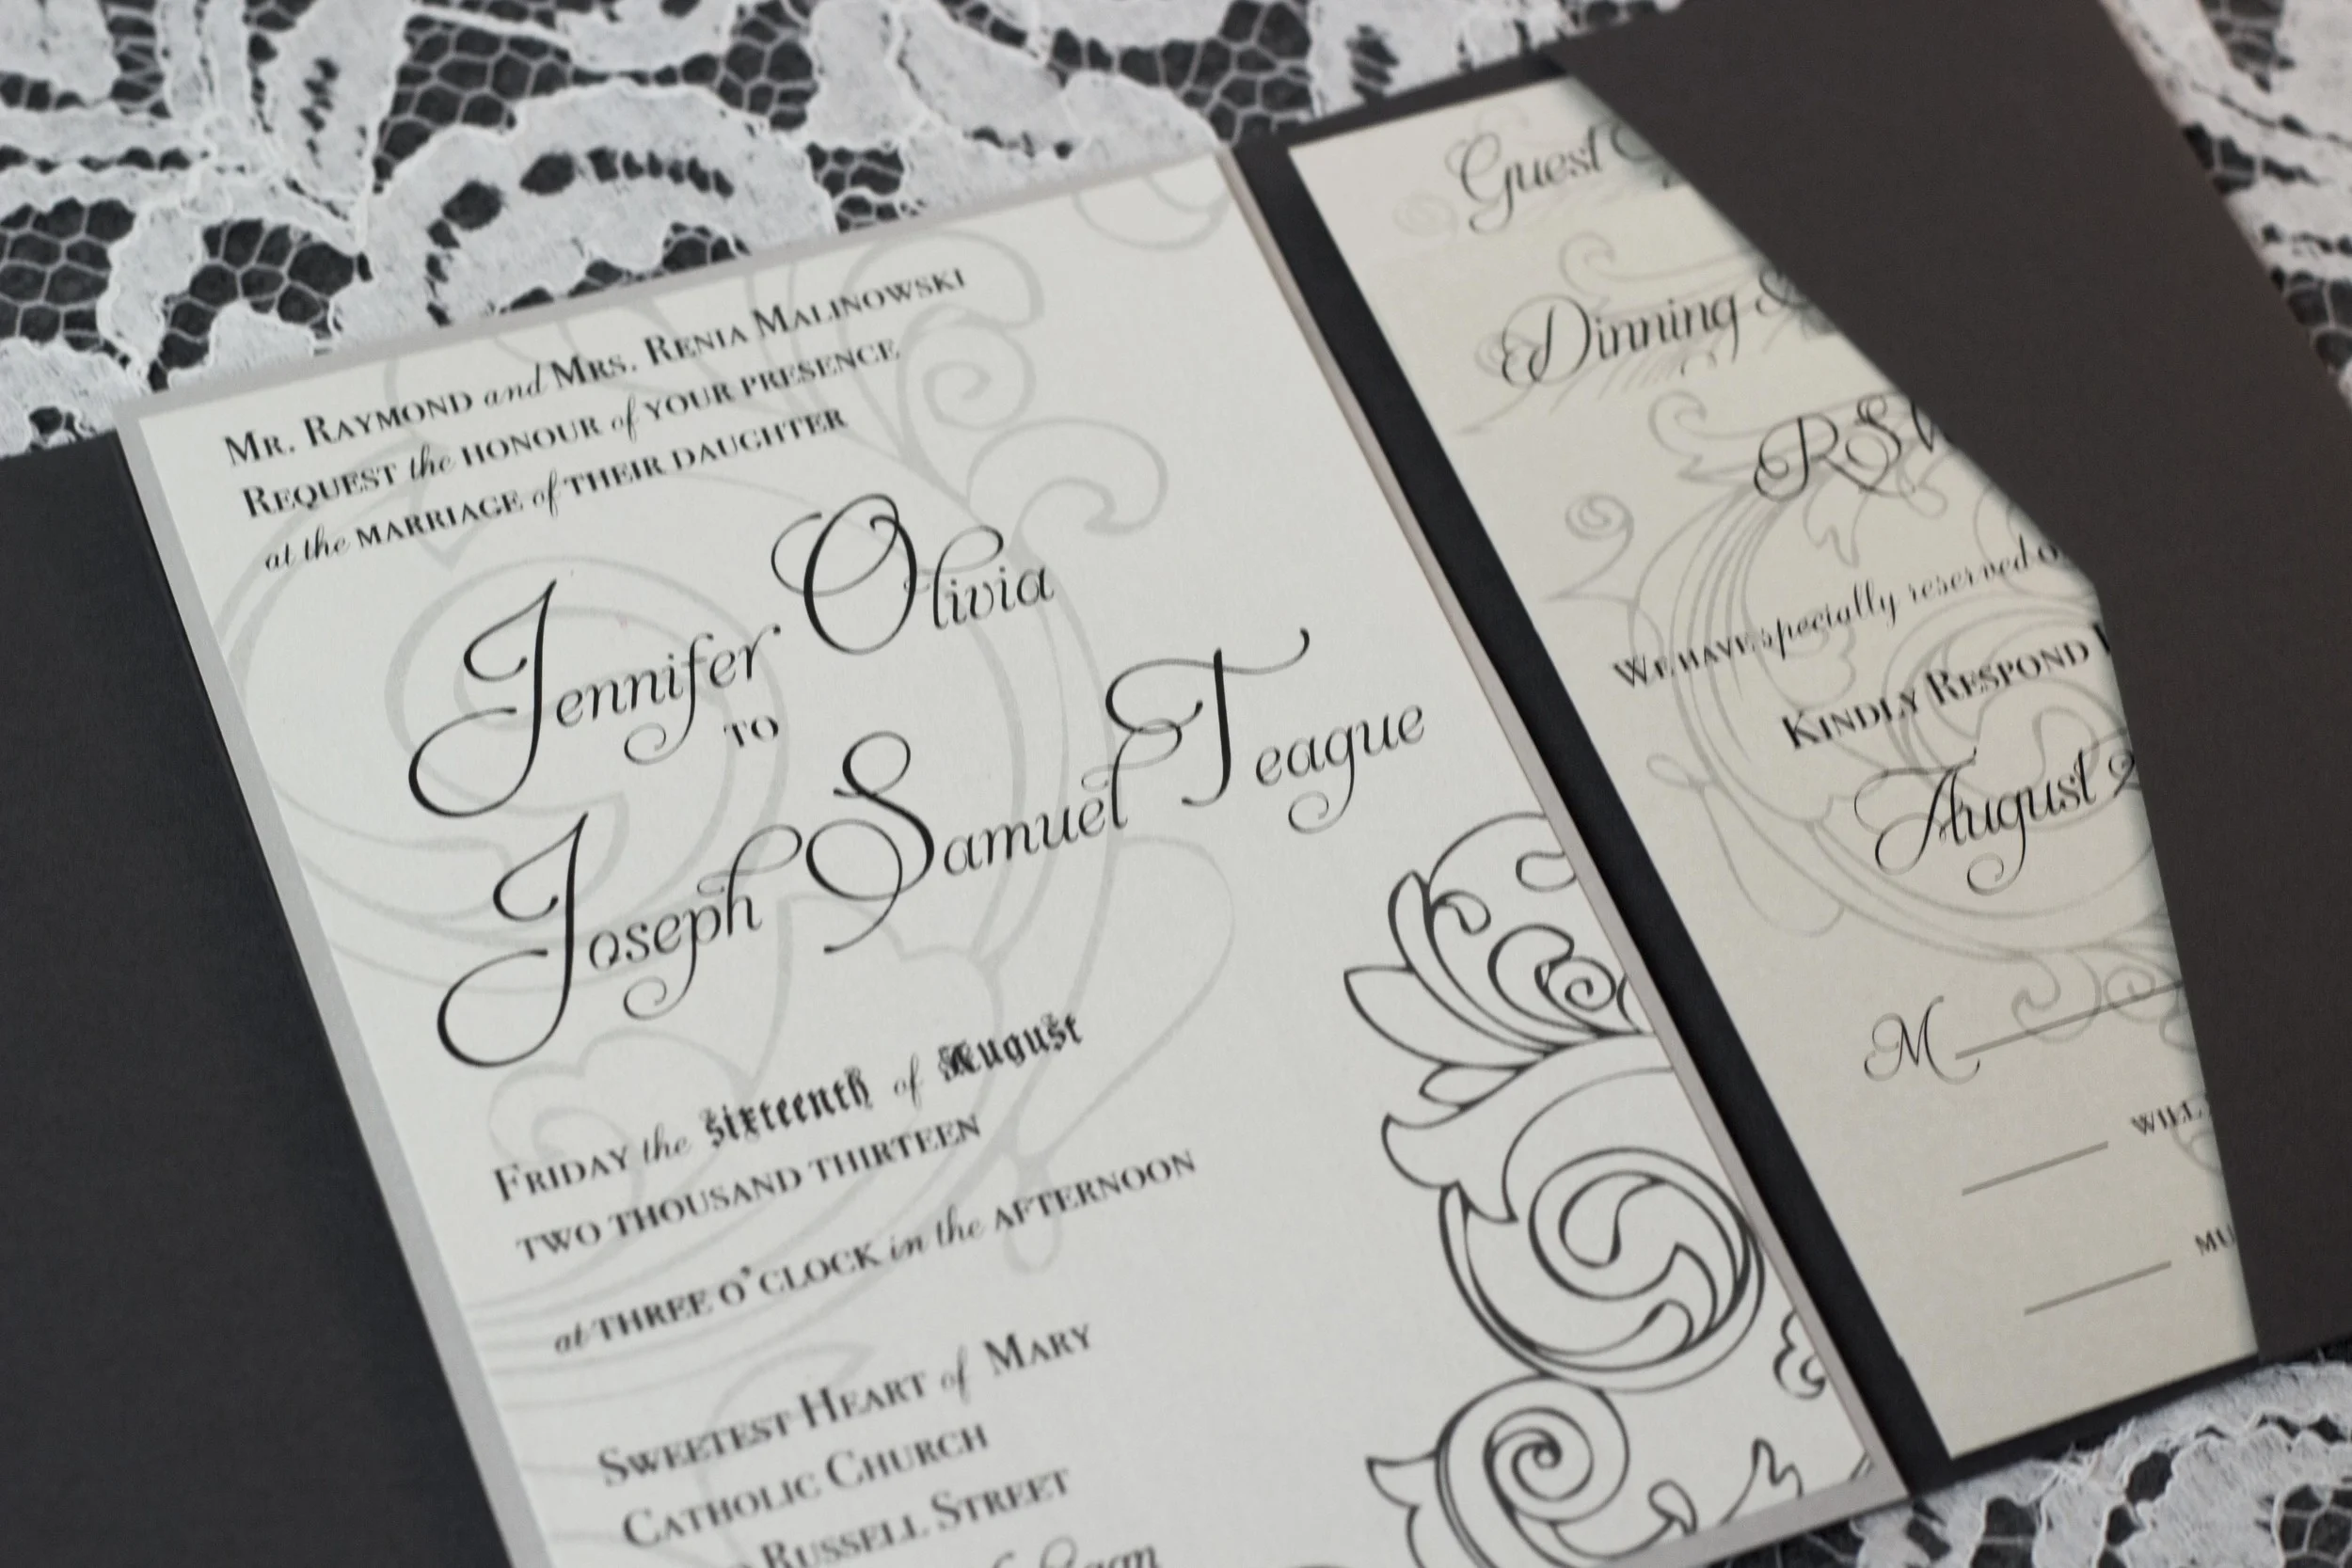 Mr. Raymond and Mrs. Renia Malinowski
Request the honour of your presence
at the marriage of their daughter
Jennifer Olivia
to
Joseph Samuel Teague
Friday the Sixteenth of August
two thousand thirteen
at three o'clock in the afternoon
Sweetest Heart of Mary
Catholic Church
Russell Street
Guest
Dinning &
RSV
We have specially reserved
Kindly Respond
August 2
M
will
mu